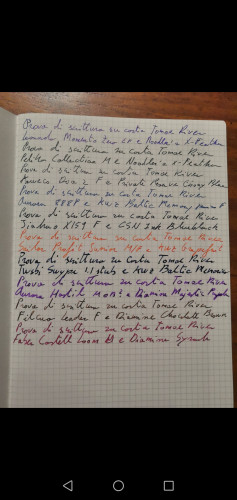 Prova di scrittura su carta Tomoe River
Leonardo Momento Zero EF e Noodler's X-Feather
Prova di scrittura su carta Tomoe River
Pelikan Collection M e Noodler's X-Feather
Prova di scrittura su carta Tomoe River
F e Private Reserve
Prova di scrittura su carta Tomoe River
Aurora 888P e KWZ Baltic Memory F
Prova di scrittura su carta Tomoe River
Jinhao X159 F e Ink Blueblack
Prova di scrittura su carta Tomoe River
Sailor Profit Junior
Prova di scrittura su carta Tomoe River
Twsbi Swipe 11 stub e KWZ Baltic Memories
Prova di scrittura su carta Tomoe River
Aurora e Diamine Majestic Purple
Prova di scrittura su carta Tomoe River
Filcao Leader F e Diamine Chocolate Brown
Prova di scrittura su carta Tomoe River
Faber Castell Loom B e Diamine Syrah